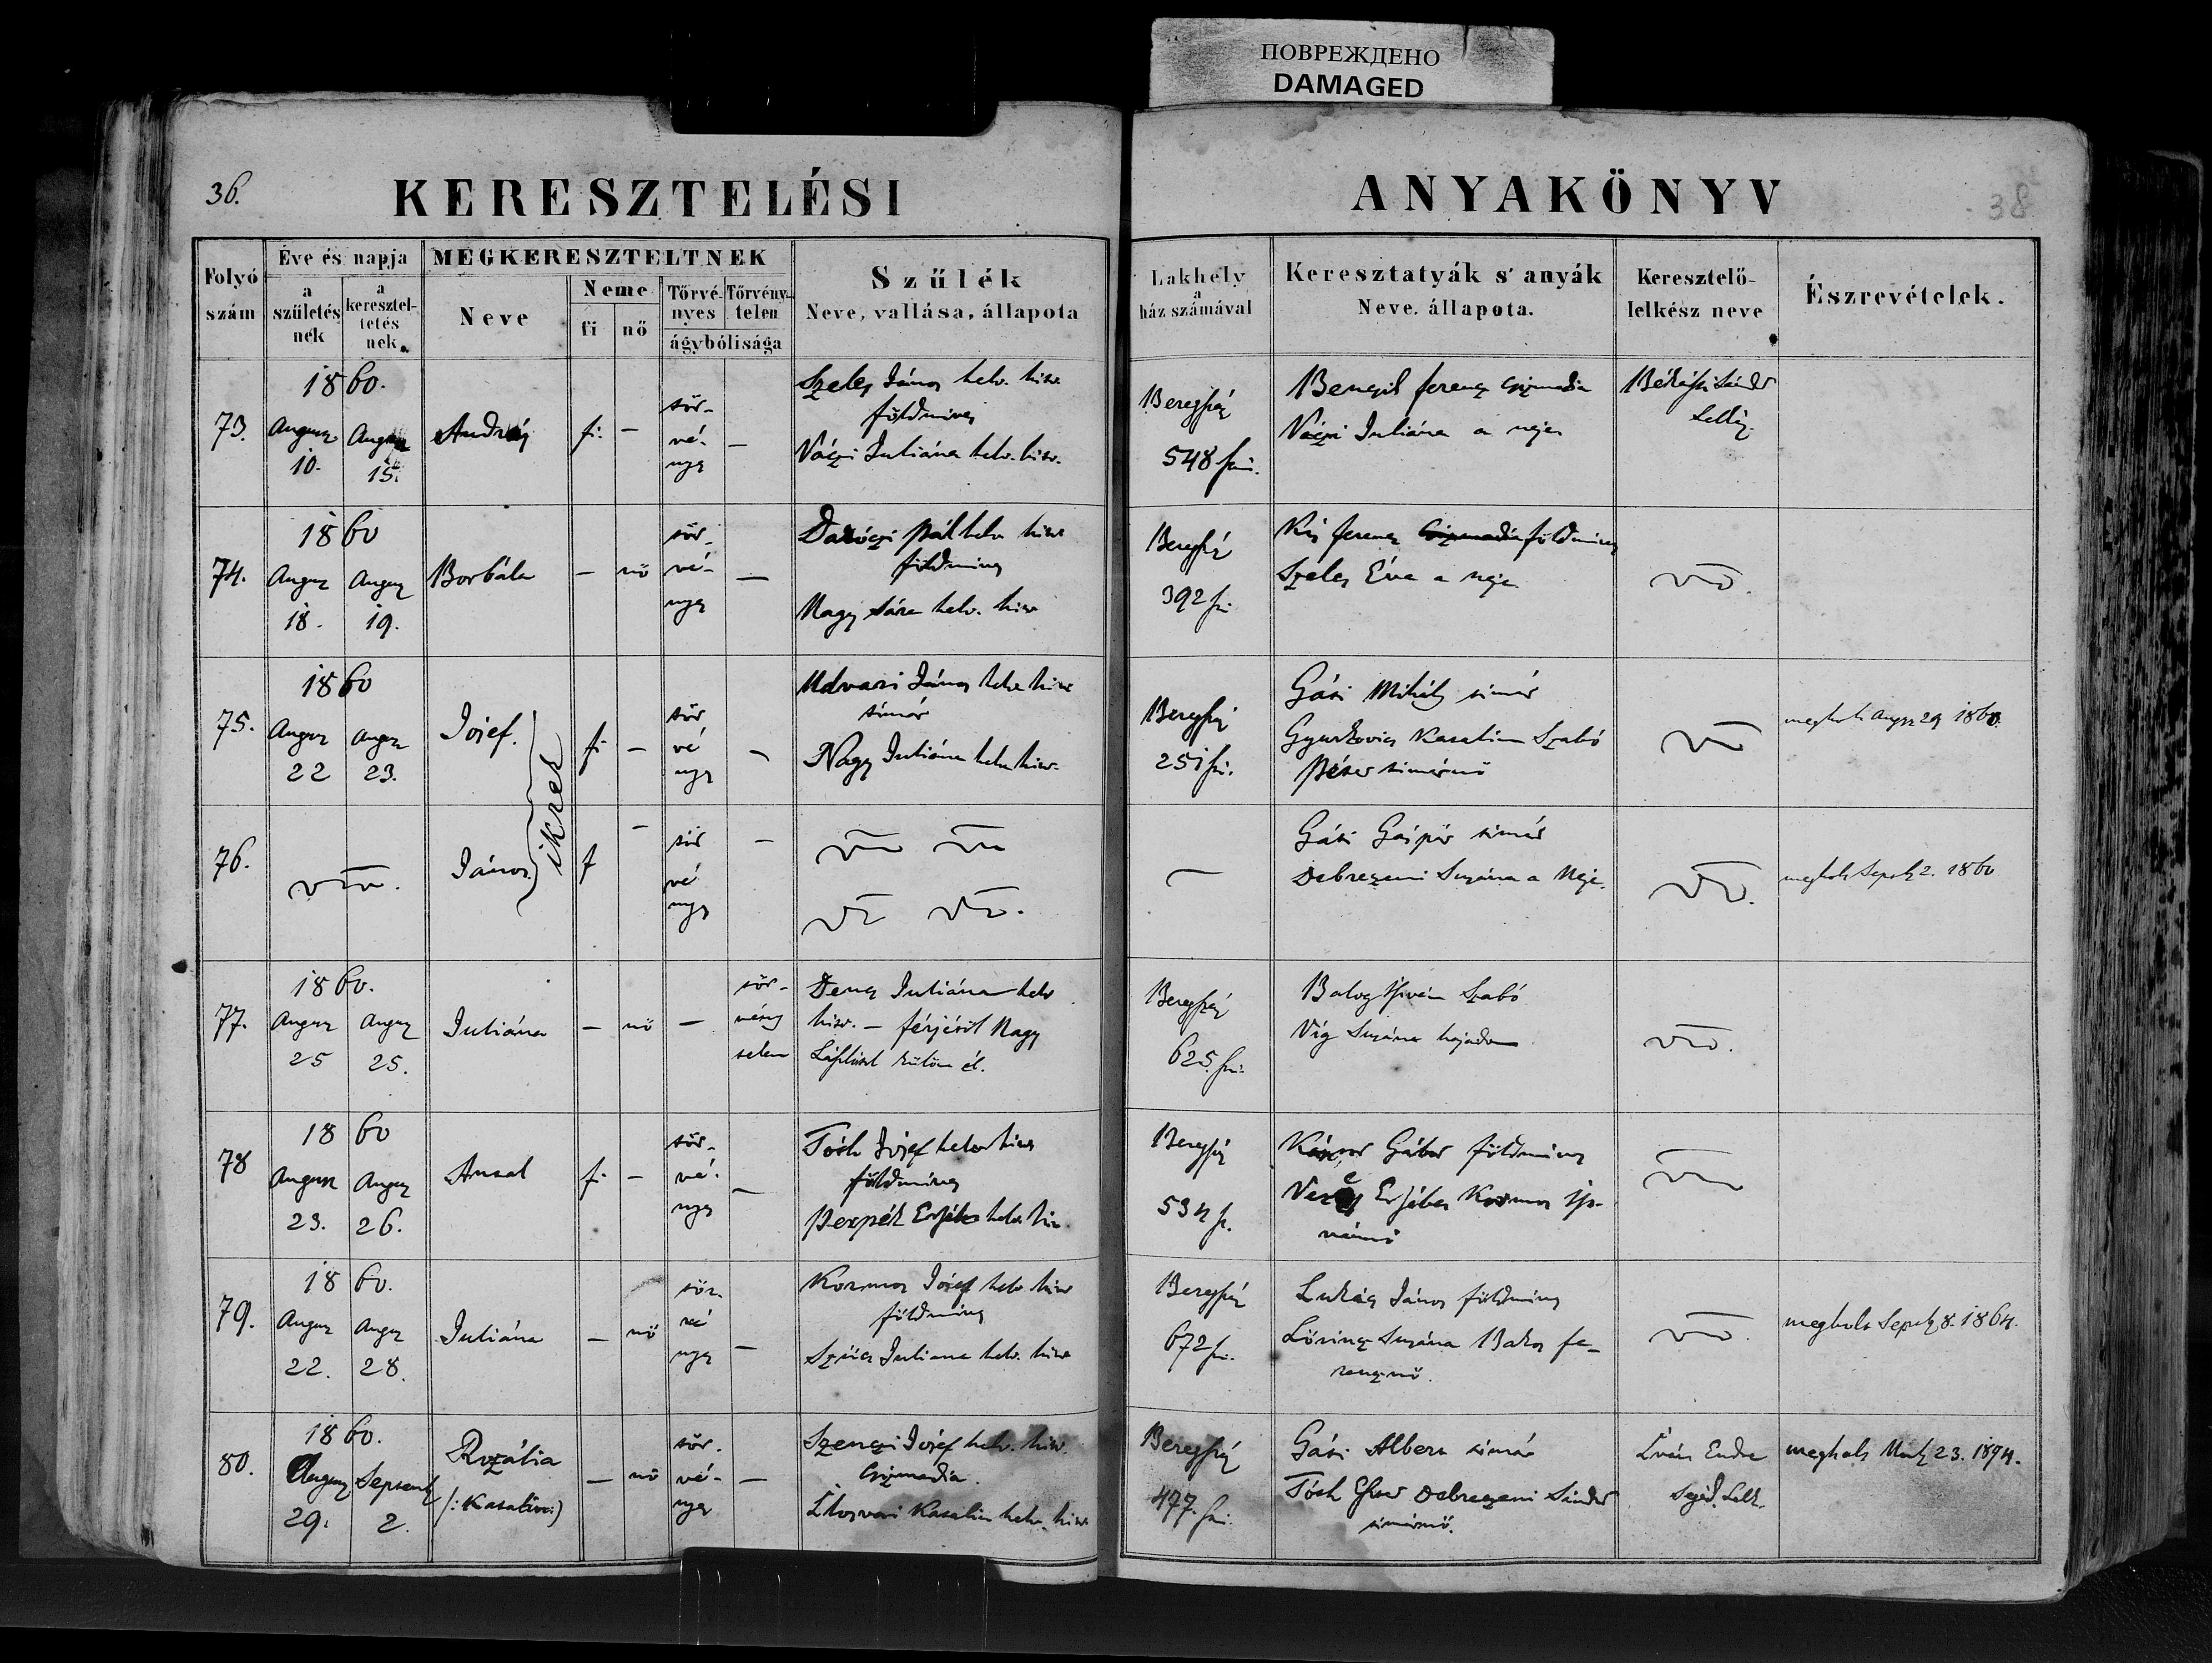 ПОВРЕЖДЕНО
DAMAGED
36.
KERESZTELÉSI
ANYAKÖNYV
38
Folyó szám
Éve és napja
a születésnek
a kereszteltetésnek
MEGKERESZTELTNEK
Neve
Neme
fi
nő
Törvényes
Törvénytelen
ágybólisága
Szűlék
Neve, vallása, állapota
Lakhely
a
ház számával
Keresztatyák s' anyák
Neve, állapota.
Keresztelő-
lelkész neve
Észrevételek.
1860.
73.
August
10.
August
15.
András
fi.
–
tör-
vé-
nyes
–
Szeles János helv. hitv.
földmives
Váczi Juliána helv. hitv.
Beregszász
548 sz.
ferencz Csizmadia
Váczi Juliána a neje
Sándor
Lelkész.
1860
74.
August
18.
August
19.
Borbála
–
nő
tör-
vé-
nyes
–
Daróczi Pál helv hitv
földmives
Nagy Sára helv. hitv
Beregszász
392 sz.
Kis ferencz Csizmadia földmives
Szeles Éva a neje
1860
75.
August
22
August
23.
Jósef.
ikrek
fi
–
tör
vé
nyes
–
Udvari János helv hitv
timár
Nagy Juliána helv hitv.
Beregszász
251 sz.
Gáti Mihály timár
Gyurkovics Katalin Szabó
Péter timárnő
megholt August 29 1860.
76.
János.
f
–
tör
vé
nyes
–
Gáti Gáspár timár
Debreczeni Susána a Neje.
megholt Septb 2. 1860
1860.
77.
August
25
August
25.
Juliána
–
nő
–
tör-
vény
telen
Juliána helv
hitv. – férjétől Nagy
külön él.
Beregszász
625. sz.
Balog István Szabó
Víg Susána hajadon
1860
78
August
23.
August
26.
Antal
fi.
–
tör-
vé-
nyes
–
Tóth Jósef helv hitv
földmives
Erzsébet helv. hitv
Beregszász
534 sz.
Gábor földmives
Erzsébet Kormos Ist-
vánnő
1860.
79.
August
22.
August
28.
Juliána
–
nő
tör-
vé
nyes
–
Kormos Jósef helv hitv
földmives
Szűcs Juliana helv. hitv
Beregszász
672 sz.
Lukács János földmives
Lőrincz Susána Bakos fe-
rencznő.
megholt Septb 8. 1864.
1860.
80.
August
29.
Septemb
2.
Rozália
(: Katalin :)
–
nő
tör-
vé-
nyes
–
Jósef helv. hitv.
Csizmadia.
Katalin helv. hitv.
Beregszász
477. sz.
Gáti Albert timár
Tóth Eszter Debreczeni Sándor
timárnő.
Iván Endre
Segéd. Lelk.
megholt 23. 1894.